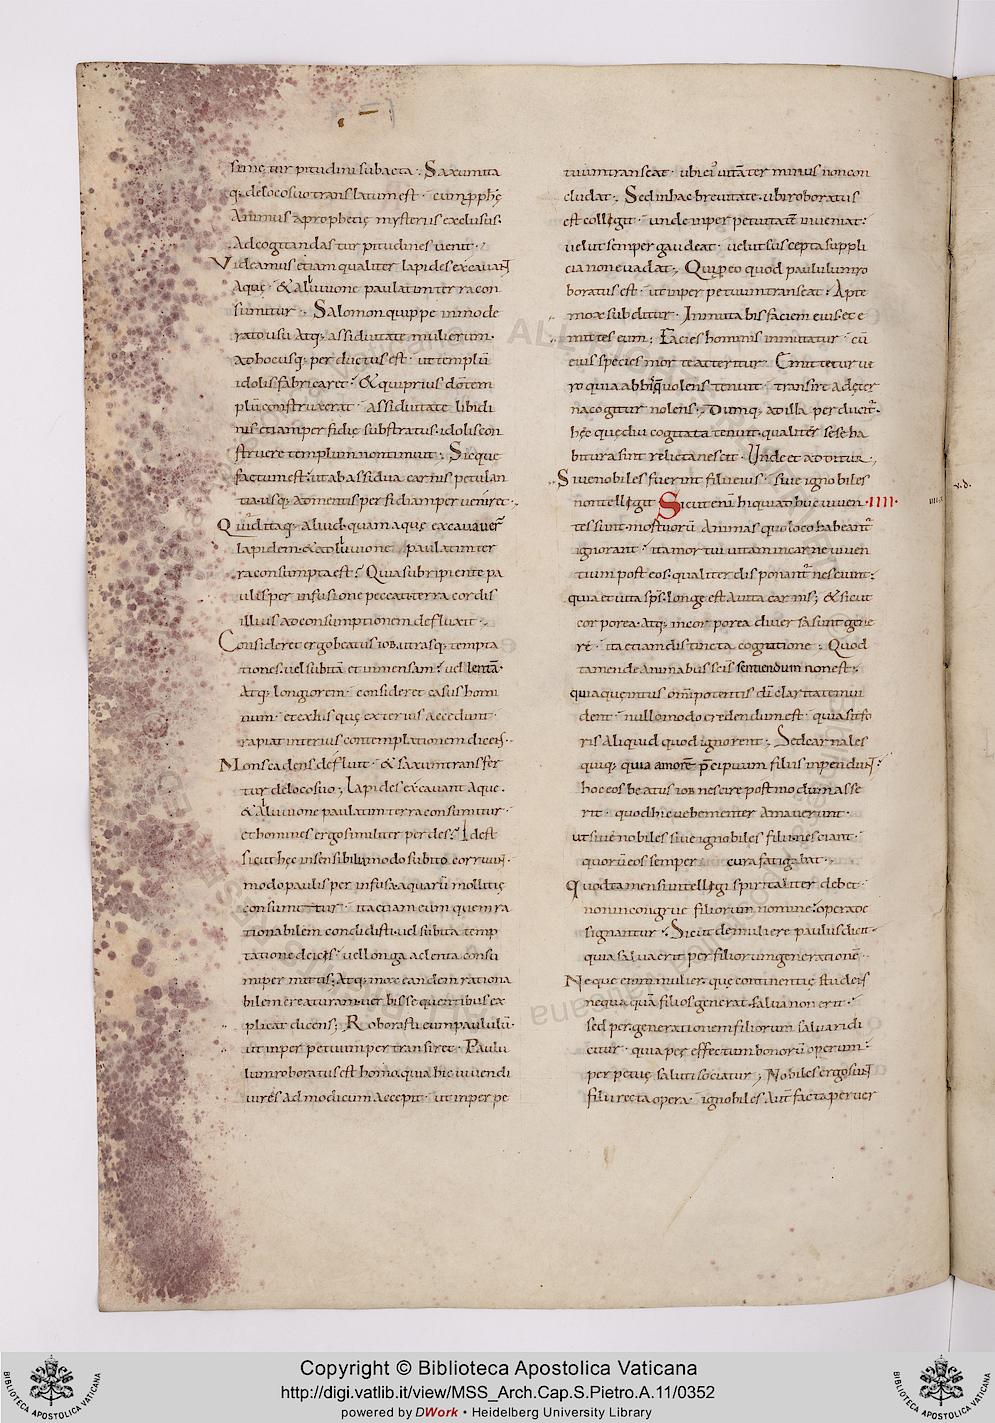 sime turpitudini subacta. Saxum ita
q; de loco suo translatum est. cum pphę
Animus a prophetię mysteriis exclusus.
Ad cogitandas turpitudines venit.
Videamus etiam qualiter lapides excavant
Aquę. & alluvione paulatim terra con
sumitur. Salomon quippe inmode
rato usu Atq; assiduitate mulierum.
ad hoc usq; perductus est. ut templū
idolis fabricaret. & qui prius dō tem
plū construxerat. assiduitate libidi
nis etiam perfidię substratus. idolis con
struere templum non timuit. Sicque
factum est. ut ab assidua carnis petulan
tia. usq; ad mentis perfidiam perveniret.
Quid itaq; aliud. quam aquę excavaver
lapidem. & adluvione paulatim ter
ra consumpta est? Quia subripiente pa
ulisper infusione peccati. terra cordis
illius ad consumptionem defluxit.
Consideret ergo beatus iob. utrasq; tempta
tiones. vel subitā et inmensam. vel lentā.
Atq; longiorem. consideret casus homi
num. et ex his quę exterius accedunt.
rapiat interius contemplationem dicens.
Mons cadens defluit. & saxum transfer
tur de loco suo; Lapides excavant Aque.
& alluvione paulatim terra consumitur.
et homines ergo similiter perdes? Idest
sicut hęc insensibilia modo subito corruun.
modo paulisper infusa aquarū mollitię
consumuntur. ita etiam eum quem ra
tionabilem condidisti. vel subita temp
tatione deicis; vel longa ac lenta consu
mi permittis. Atq; mox eandem rationa
bilem creaturam. verbis sequentibus ex
plicat dicens; Roborasti eum paululū.
ut in perpetuum pertransiret. Paulu
lum roboratus est homo. quia hic vivendi
vires ad modicum Accepit. ut in perpe
tuum transeat. ubi ei' vitā ter minus non con
cludat. Sed in hac brevitate. ubi roboratus
est collegit. unde in perpetuitatē inveniat.
vel ut semper gaudeat. vel ut suscepta suppli
cia non evadat. Qui p eo quod paululum ro
boratus est. ut in perpetuum transeat. Apte
mox subditur. Inmutabis faciem eius et e
mittes eum; Facies hominis inmutatur. cū
eius species morte atteritur. Emittetur ve
ro quia ab his q̄ volens tenuit. transire ad ęter
na cogitur nolens. Dumq; ad illa perducit̄.
hęc quę diu cogitata tenuit. qualiter sese ha
bitura sint relicta nescit. Unde et additur.
Sive nobiles fuerint filii eius. sive ignobiles
non intellegit Sicut enī hi qui adhuc viven IIII.
tes sunt. mortuorū Animas quo loco habeant̄
ignorant. ita mortui vitam in carne viven
tium post eos. qualiter disponant̄ nesciunt.
quia et vita sps̄. longe est A vita carnis; & sicut
corporea. Atq; incorporea diversa sunt gene
re. ita etiam distincta cognitione. Quod
tamen de Animabus scīs sentiendum non est.
quia quę intus omīpotentis dī claritatem vi
dent. nullo modo credendum est. quia sit fo
ris Aliquid quod ignorent. Sed carnales
quiq; quia amorē p̄cipuum filiis inpendun.
hoc eos beatus iob nescire postmodum asse
rit. quod hic vehementer Amaverunt.
ut sive nobiles sive ignobiles filii nesciant.
quorū eos semper cura fatigabat.
Quod tamen si intellegi spiritaliter debet.
non incongrue filiorum nomine. opera de
signantur. Sicut de muliere paulus dicit.
quia salva erit per filiorum generationē.
Neque enim mulier. quę continentię studens
nequaquā filios generat. salva non erit.
sed per generationem filiorum salvari di
citur. quia per effectum bonorū operum.
perpetuę saluti sociatur; Nobiles ergo sun
filii recta opera. ignobiles Aut̄ facta perver
Copyright © Biblioteca Apostolica Vaticana
http://digi.vatlib.it/view/MSS_Arch.Cap.S.Pietro.A.11/0352
powered by DWork • Heidelberg University Library
BIBLIOTECA APOSTOLICA VATICANA
BIBLIOTECA APOSTOLICA VATICANA